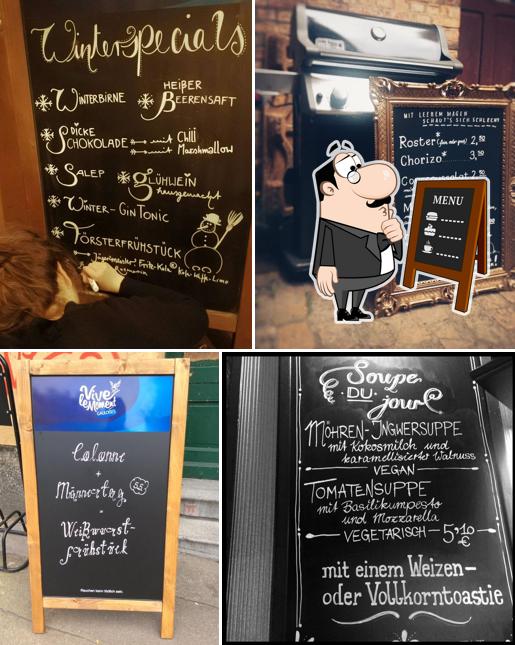 Winterspecials
Winterbirne
Heißer
Beerensaft
Dicke
Schokolade mit Chili
mit Marshmallow
Salep
Glühwein
hausgemacht
Winter-GinTonic
Försterfrühstück
Jägermeister
Rosmarin
MIT LEEREM MAGEN
SCHAUT'S SICH SCHLECHT
Roster* 2,80
Chorizo* 3,50
MENU
Vive
le Moment
GAULOISES
Männertag
=
Weißwurst-
frühstück
Rauchen kann tödlich sein.
Soupe
DU
jour
Möhren-Ingwersuppe
mit Kokosmilch und
karamellisierter Walnuss
VEGAN
Tomatensuppe
mit Basilikumpesto
und Mozzarella
VEGETARISCH 5,10
€
mit einem Weizen-
oder Vollkorntoastie